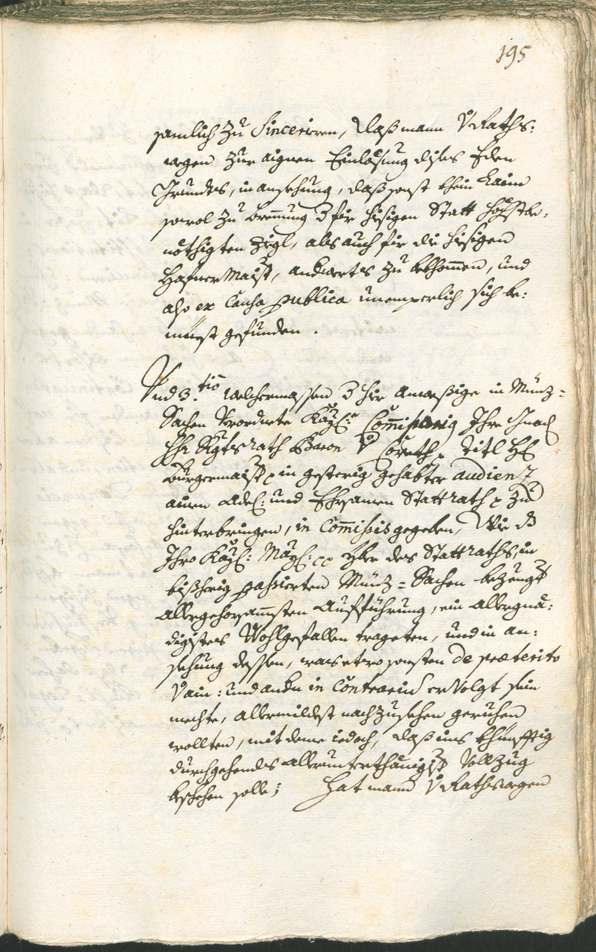 195
samlich zu Sinceriren, daß mann V Raths:
wegen zur aignen Einlösung dises Eden
Grundes, in ansehung, daß sonst khein Laim
sowol zu brennung d für hiesigen Statt höchstbe:
nöthigten Zigl, als auch für die hiesigen
Hafner Maist, anderwerts zu bekhommen, und
also ex Causa publica unemperlich sich be:
müest gefunden.
Und 3.tio welchermassen d hier anwesige in Münz=
Sachen Verordnete Kayl: Commissarig Ihro Gnad
H Rgtsrath Baron V titl H
Burgermaist in gesterig gehabter audienz
ainem Adel: und Ehrsamen Stattrath zu
hinterbringen, in Commissis gegeben, Wie dz
Ihro Kayl: May: cc yber des Stattraths, in
bißherig passierten Münz=Sachen bezeugt
allergehorsambsten Aufführung, ein allergnä:
digistes Wohlgefallen trageten, und in an:
sehung dessen, was etwo sonsten de praeterito
V ain: und andn in Contrarium ervolgt sein
mechte, allermildest nachzusehen geruhen
wollten, mit deme iedoch, daß uns khünfftig
durchgehendes allerunterthänigst Vollzug
beschehen solle; Hat mann V Rathswegen